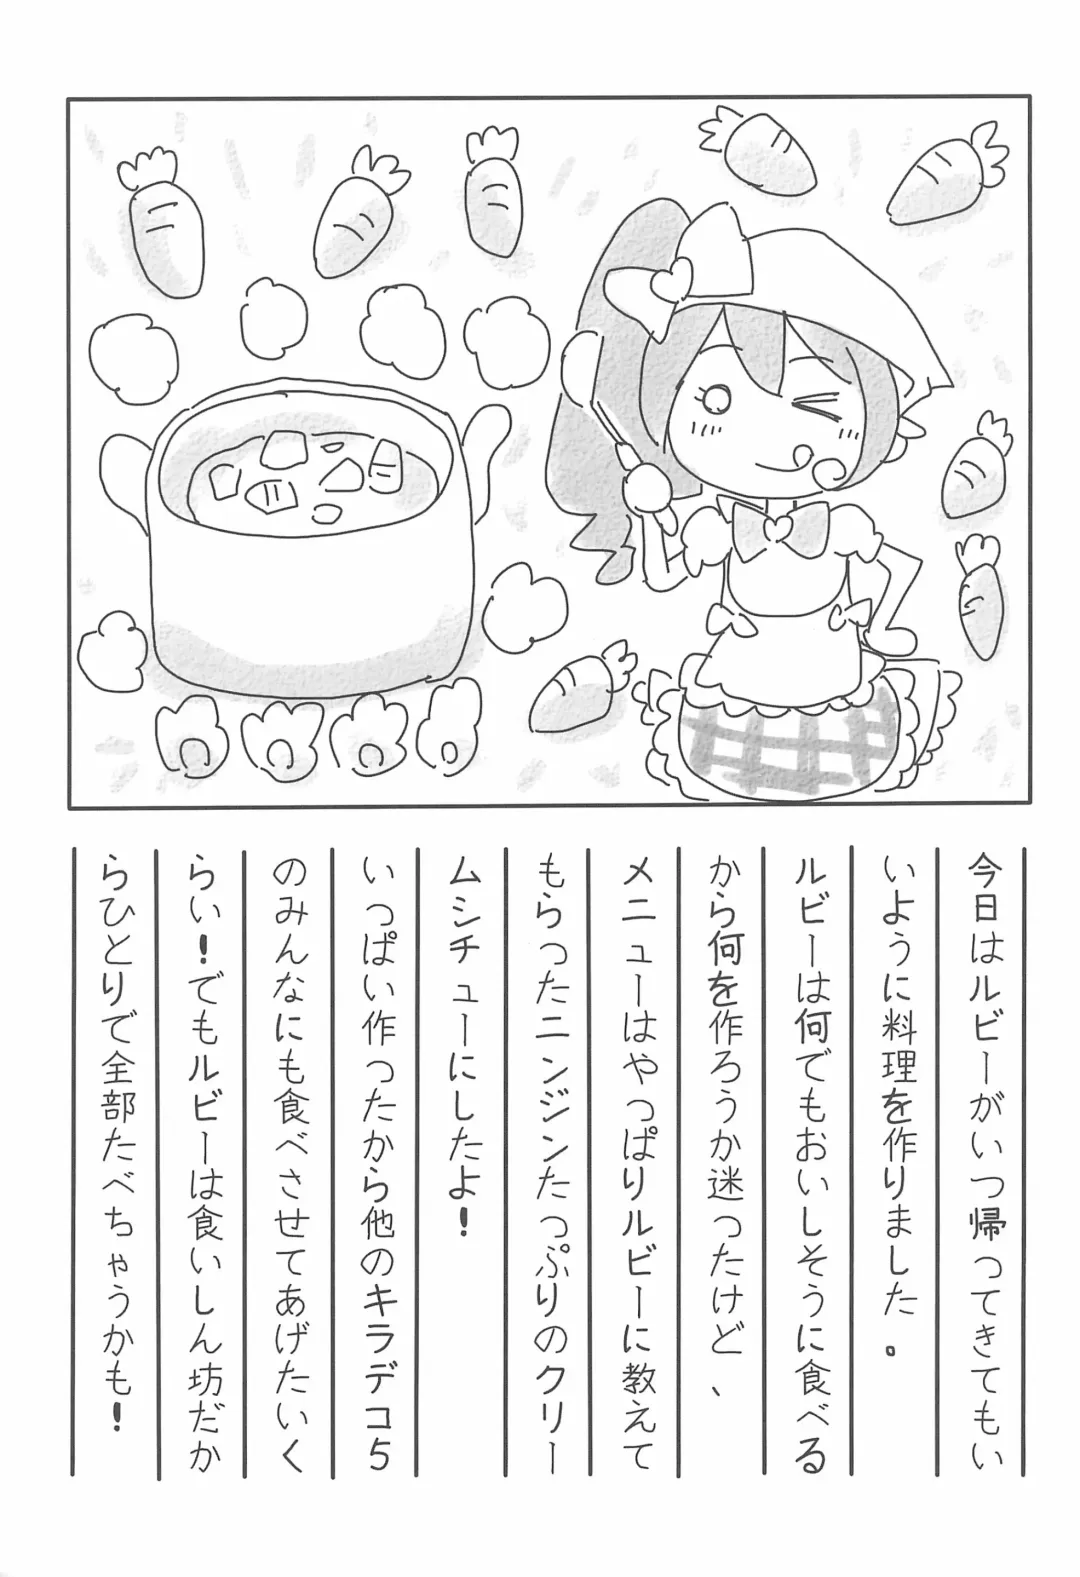 今日はルビーがいつ帰ってきてもい
いように料理を作りました。
ルビーは何でもおいしそうに食べる
から何を作ろうか迷ったけど、
メニューはやっぱりルビーに教えて
もらったニンジンたっぷりのクリー
ムシチューにしたよ！
いっぱい作ったから他のキラデコ5
のみんなにも食べさせてあげたいく
らい！でもルビーは食いしん坊だか
らひとりで全部たべちゃうかも！